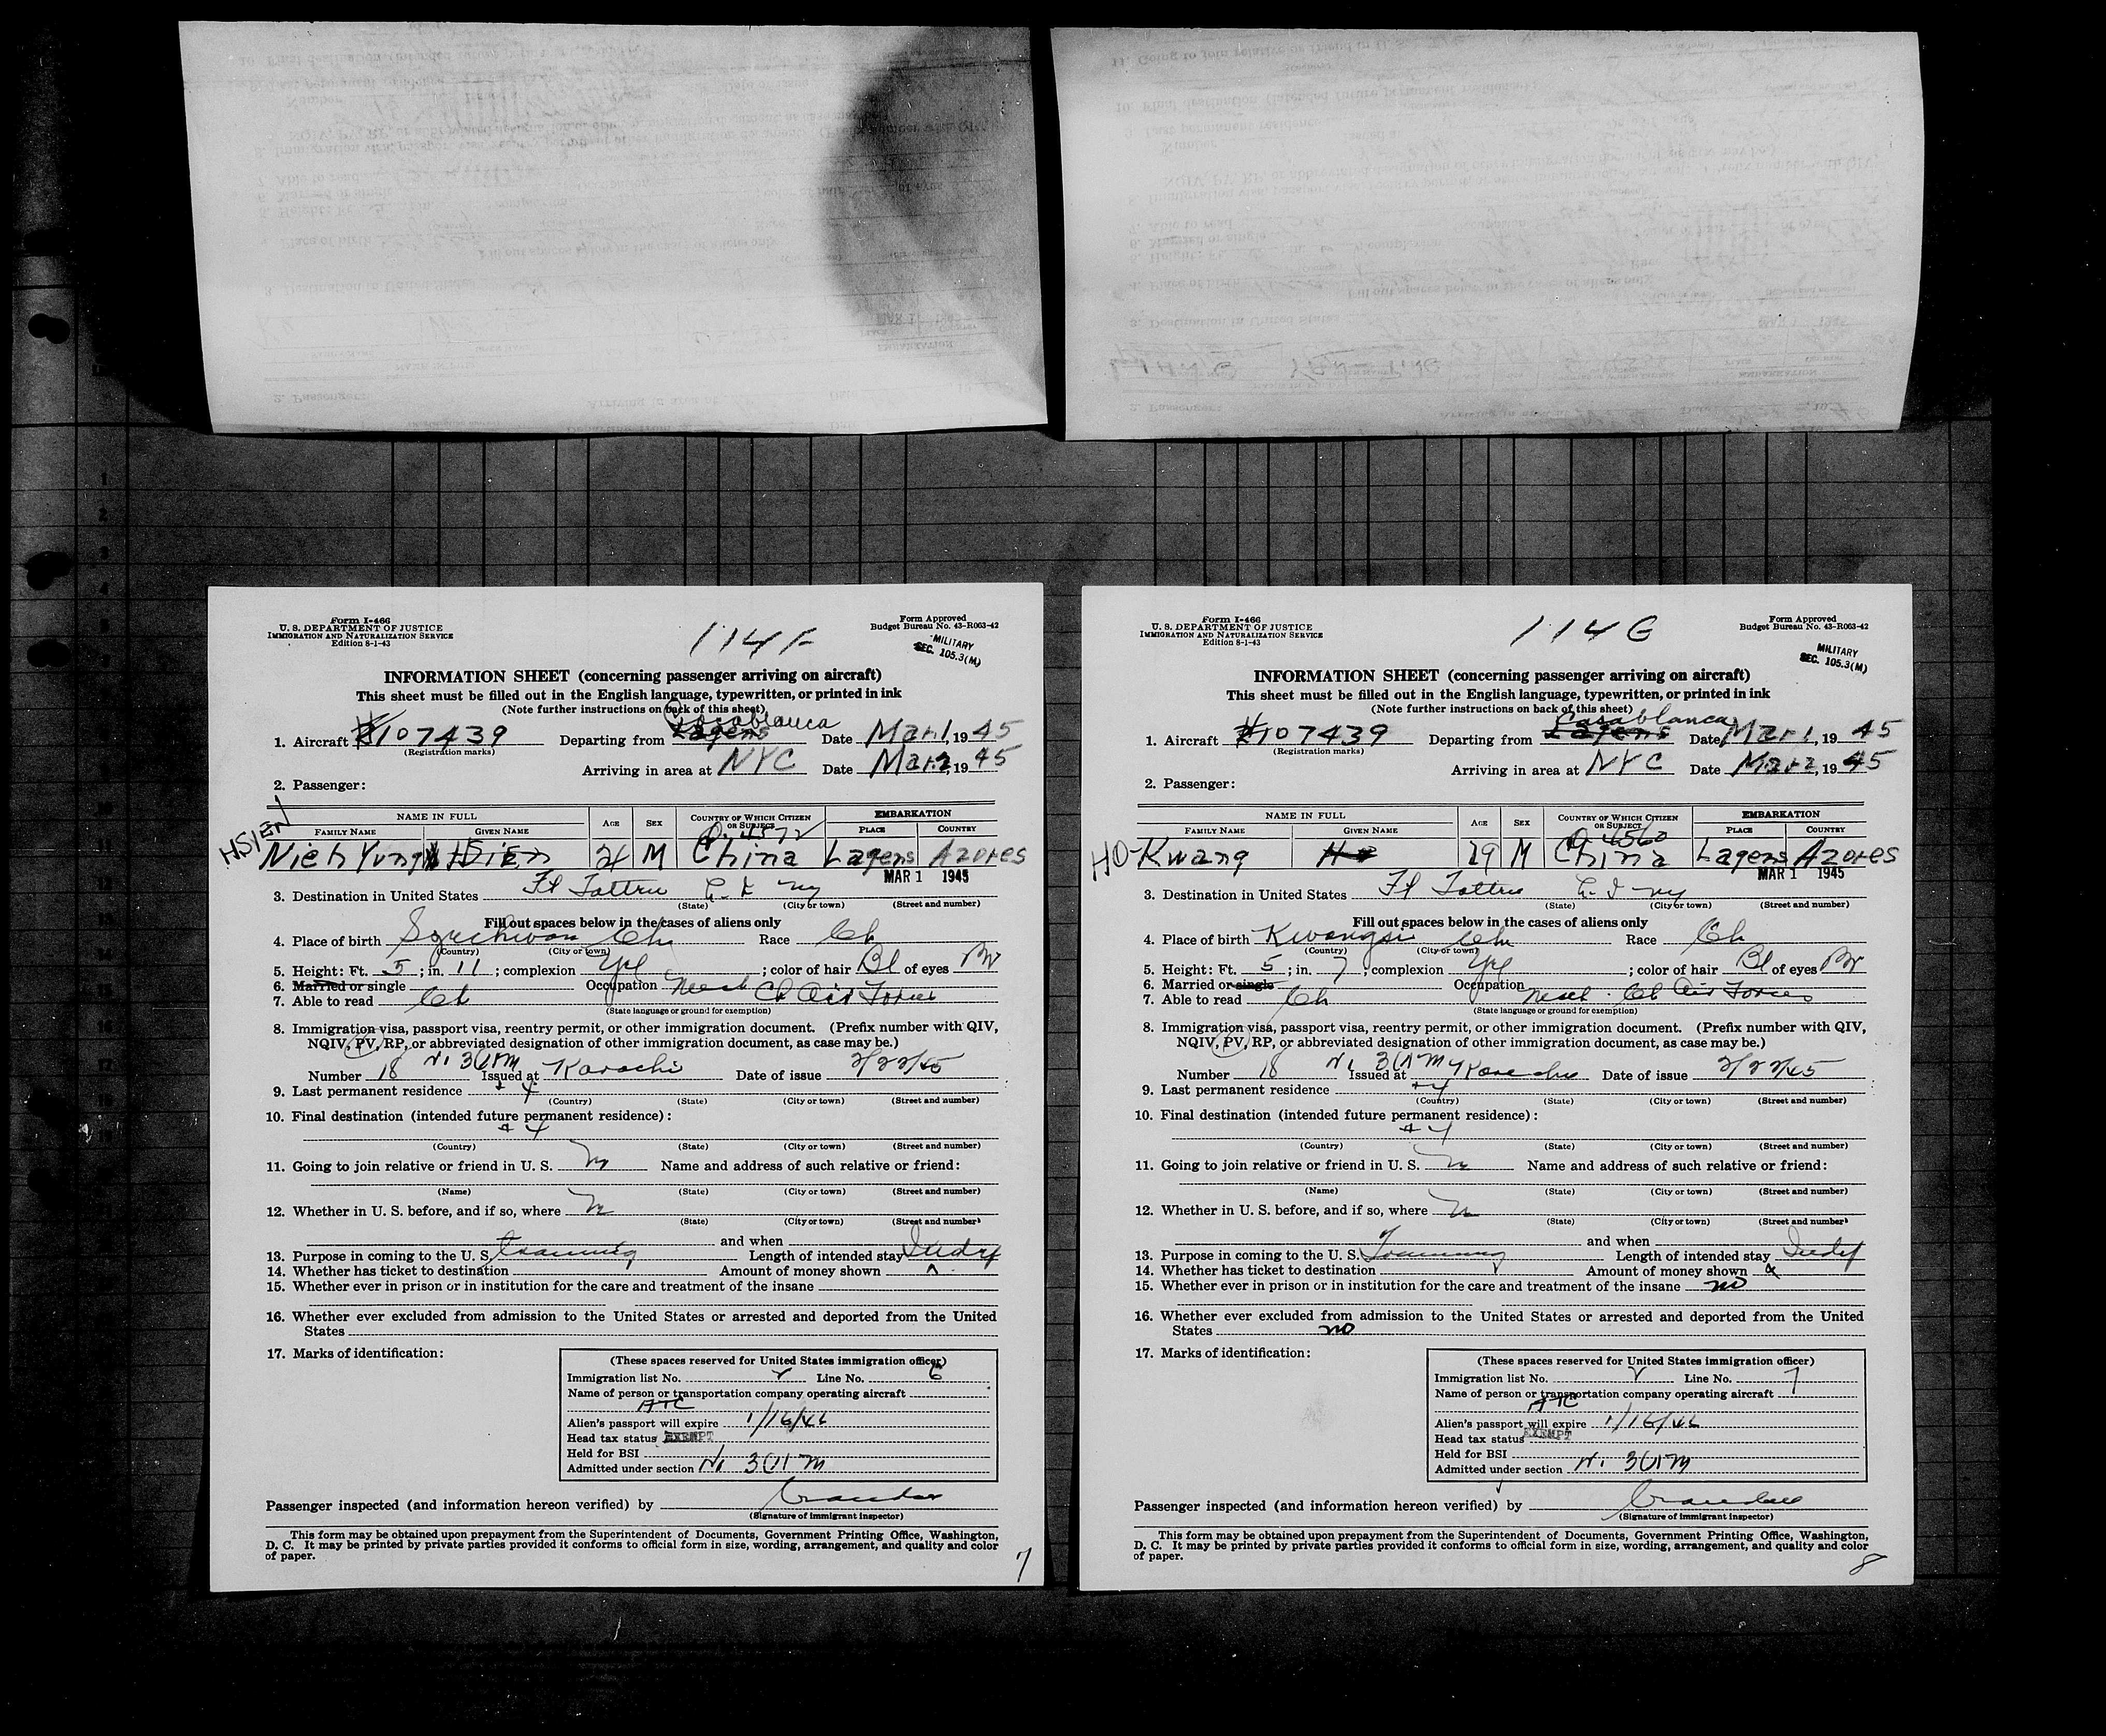 Form I-466
U. S. DEPARTMENT OF JUSTICE
IMMIGRATION AND NATURALIZATION SERVICE
Edition 8-1-43
114 F
Form Approved
Budget Bureau No. 43-R063-42
MILITARY
SEC. 105.3(M)
INFORMATION SHEET (concerning passenger arriving on aircraft)
This sheet must be filled out in the English language, typewritten, or printed in ink
(Note further instructions on back of this sheet)
Casablanca
1. Aircraft 107439 Departing from Lagens Date Mar. 1, 1945
(Registration marks)
Arriving in area at NYC Date Mar. 2, 1945
2. Passenger:
NAME IN FULL AGE SEX COUNTRY OF WHICH CITIZEN OR SUBJECT EMBARKATION
FAMILY NAME GIVEN NAME PLACE COUNTRY
HSIEN
4572
Nieh Yung HSIEN M China Lagens Azores
MAR 1 1945
3. Destination in United States Ft Totten L. I. NY
(State) (City or town) (Street and number)
Fill out spaces below in the cases of aliens only
4. Place of birth Szechwan Ch Race Ch
(Country) (City or town)
5. Height: Ft. 5; in. 11; complexion Yel; color of hair Bl of eyes Br
6. Married or single Occupation Ch Air Forces
7. Able to read Ch
(State language or ground for exemption)
8. Immigration visa, passport visa, reentry permit, or other immigration document. (Prefix number with QIV,
NQIV, PV, RP, or abbreviated designation of other immigration document, as case may be.)
Number 18 Issued at Karachi Date of issue 2/22/45
9. Last permanent residence #4
(Country) (State) (City or town) (Street and number)
10. Final destination (intended future permanent residence):
#4
(Country) (State) (City or town) (Street and number)
11. Going to join relative or friend in U. S. Name and address of such relative or friend:
(Name) (State) (City or town) (Street and number)
12. Whether in U. S. before, and if so, where
(State) (City or town) (Street and number)
and when
13. Purpose in coming to the U. S. training Length of intended stay Indef
14. Whether has ticket to destination Amount of money shown
15. Whether ever in prison or in institution for the care and treatment of the insane
16. Whether ever excluded from admission to the United States or arrested and deported from the United
States
17. Marks of identification:
(These spaces reserved for United States immigration officer)
Immigration list No. Line No. 6
Name of person or transportation company operating aircraft
ATC
Alien's passport will expire 1/16/46
Head tax status EXEMPT
Held for BSI
Admitted under section
Passenger inspected (and information hereon verified) by
(Signature of immigrant inspector)
This form may be obtained upon prepayment from the Superintendent of Documents, Government Printing Office, Washington,
D. C. It may be printed by private parties provided it conforms to official form in size, wording, arrangement, and quality and color
of paper.
7
Form I-466
U. S. DEPARTMENT OF JUSTICE
IMMIGRATION AND NATURALIZATION SERVICE
Edition 8-1-43
114 G
Form Approved
Budget Bureau No. 43-R063-42
MILITARY
SEC. 105.3(M)
INFORMATION SHEET (concerning passenger arriving on aircraft)
This sheet must be filled out in the English language, typewritten, or printed in ink
(Note further instructions on back of this sheet)
Casablanca
1. Aircraft 107439 Departing from Lagens Date Mar. 1, 1945
(Registration marks)
Arriving in area at NYC Date Mar 2, 1945
2. Passenger:
NAME IN FULL AGE SEX COUNTRY OF WHICH CITIZEN OR SUBJECT EMBARKATION
FAMILY NAME GIVEN NAME PLACE COUNTRY
HO-Kwang Ho 29 M China Lagens Azores
MAR 1 1945
3. Destination in United States Ft Totten L. I. NY
(State) (City or town) (Street and number)
Fill out spaces below in the cases of aliens only
4. Place of birth Kwangsi Ch Race Ch
(Country) (City or town)
5. Height: Ft. 5; in. 7; complexion Yel; color of hair Bl of eyes Br
6. Married or single Occupation Ch Air Forces
7. Able to read Ch
(State language or ground for exemption)
8. Immigration visa, passport visa, reentry permit, or other immigration document. (Prefix number with QIV,
NQIV, PV, RP, or abbreviated designation of other immigration document, as case may be.)
Number 18 Issued at Karachi Date of issue 2/22/45
9. Last permanent residence #4
(Country) (State) (City or town) (Street and number)
10. Final destination (intended future permanent residence):
#4
(Country) (State) (City or town) (Street and number)
11. Going to join relative or friend in U. S. Name and address of such relative or friend:
(Name) (State) (City or town) (Street and number)
12. Whether in U. S. before, and if so, where
(State) (City or town) (Street and number)
and when
13. Purpose in coming to the U. S. Training Length of intended stay Indef
14. Whether has ticket to destination Amount of money shown
15. Whether ever in prison or in institution for the care and treatment of the insane no
16. Whether ever excluded from admission to the United States or arrested and deported from the United
States no
17. Marks of identification:
(These spaces reserved for United States immigration officer)
Immigration list No. Line No. 7
Name of person or transportation company operating aircraft
ATC
Alien's passport will expire 1/16/46
Head tax status EXEMPT
Held for BSI
Admitted under section
Passenger inspected (and information hereon verified) by
(Signature of immigrant inspector)
This form may be obtained upon prepayment from the Superintendent of Documents, Government Printing Office, Washington,
D. C. It may be printed by private parties provided it conforms to official form in size, wording, arrangement, and quality and color
of paper.
8